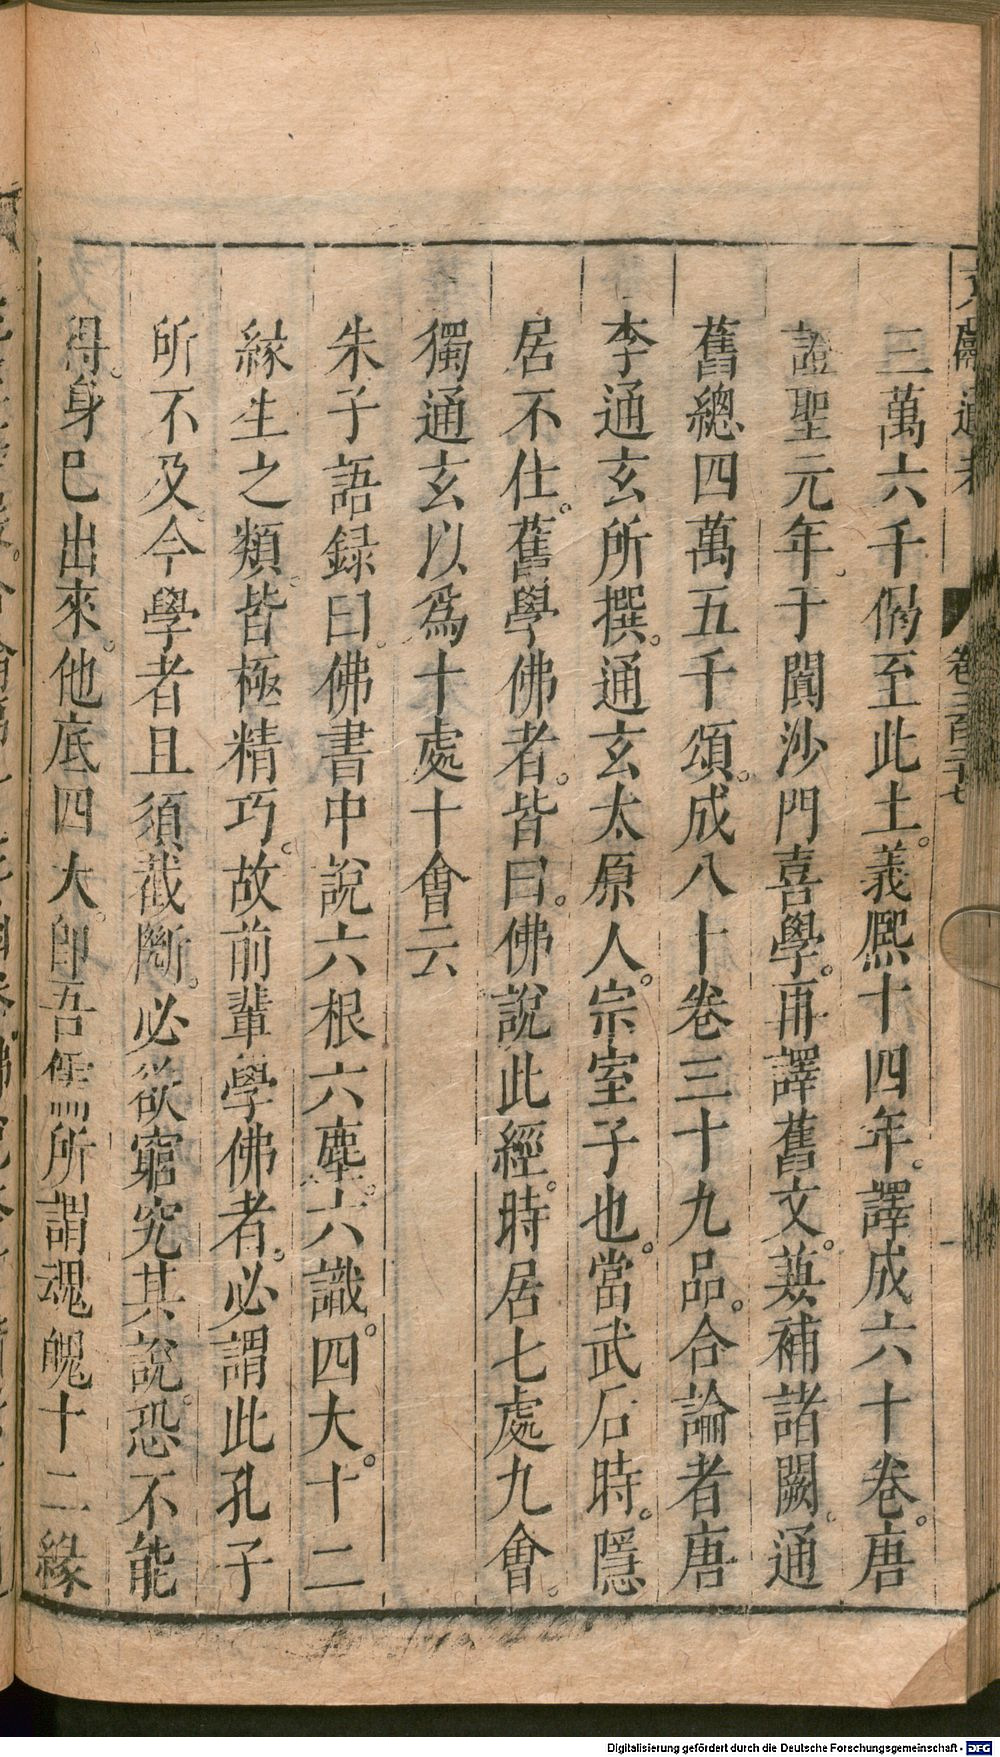 文獻通考 卷二百二十七
三萬六千偈至此土。義熙十四年。譯成六十卷。唐
證聖元年。于闐沙門喜學。再譯舊文。兼補諸闕。通
舊總四萬五千頌。成八十卷三十九品。合論者唐
李通玄所撰。通玄太原人。宗室子也。當武后時。隱
居不仕。舊學佛者。皆曰。佛說此經。時居七處九會。
獨通玄以爲十處十會云
朱子語録曰。佛書中說六根六塵。六識。四大。十二
緣生之類。皆極精巧。故前輩學佛者。必謂此孔子
所不及。今學者且須截斷。必欲窮究其說。恐不能
得。身已出來。他底四大。即吾儒所謂魂魄十二緣
Digitalisierung gefördert durch die Deutsche Forschungsgemeinschaft - DFG